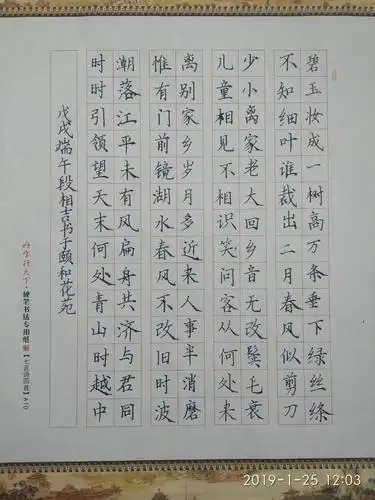 碧玉妆成一树高万条垂下绿丝绦
不知细叶谁裁出二月春风似剪刀
少小离家老大回乡音无改鬓毛衰
儿童相见不相识笑问客从何处来
离别家乡岁月多近来人事半消磨
惟有门前镜湖水春风不改旧时波
潮落江平未有风扁舟共济与君同
时时引领望天末何处青山时越中
戊戌端午段相吉书于颐和花苑
好字行天下·硬笔书法专用纸【七言诗四首】
2019-1-25 12:03